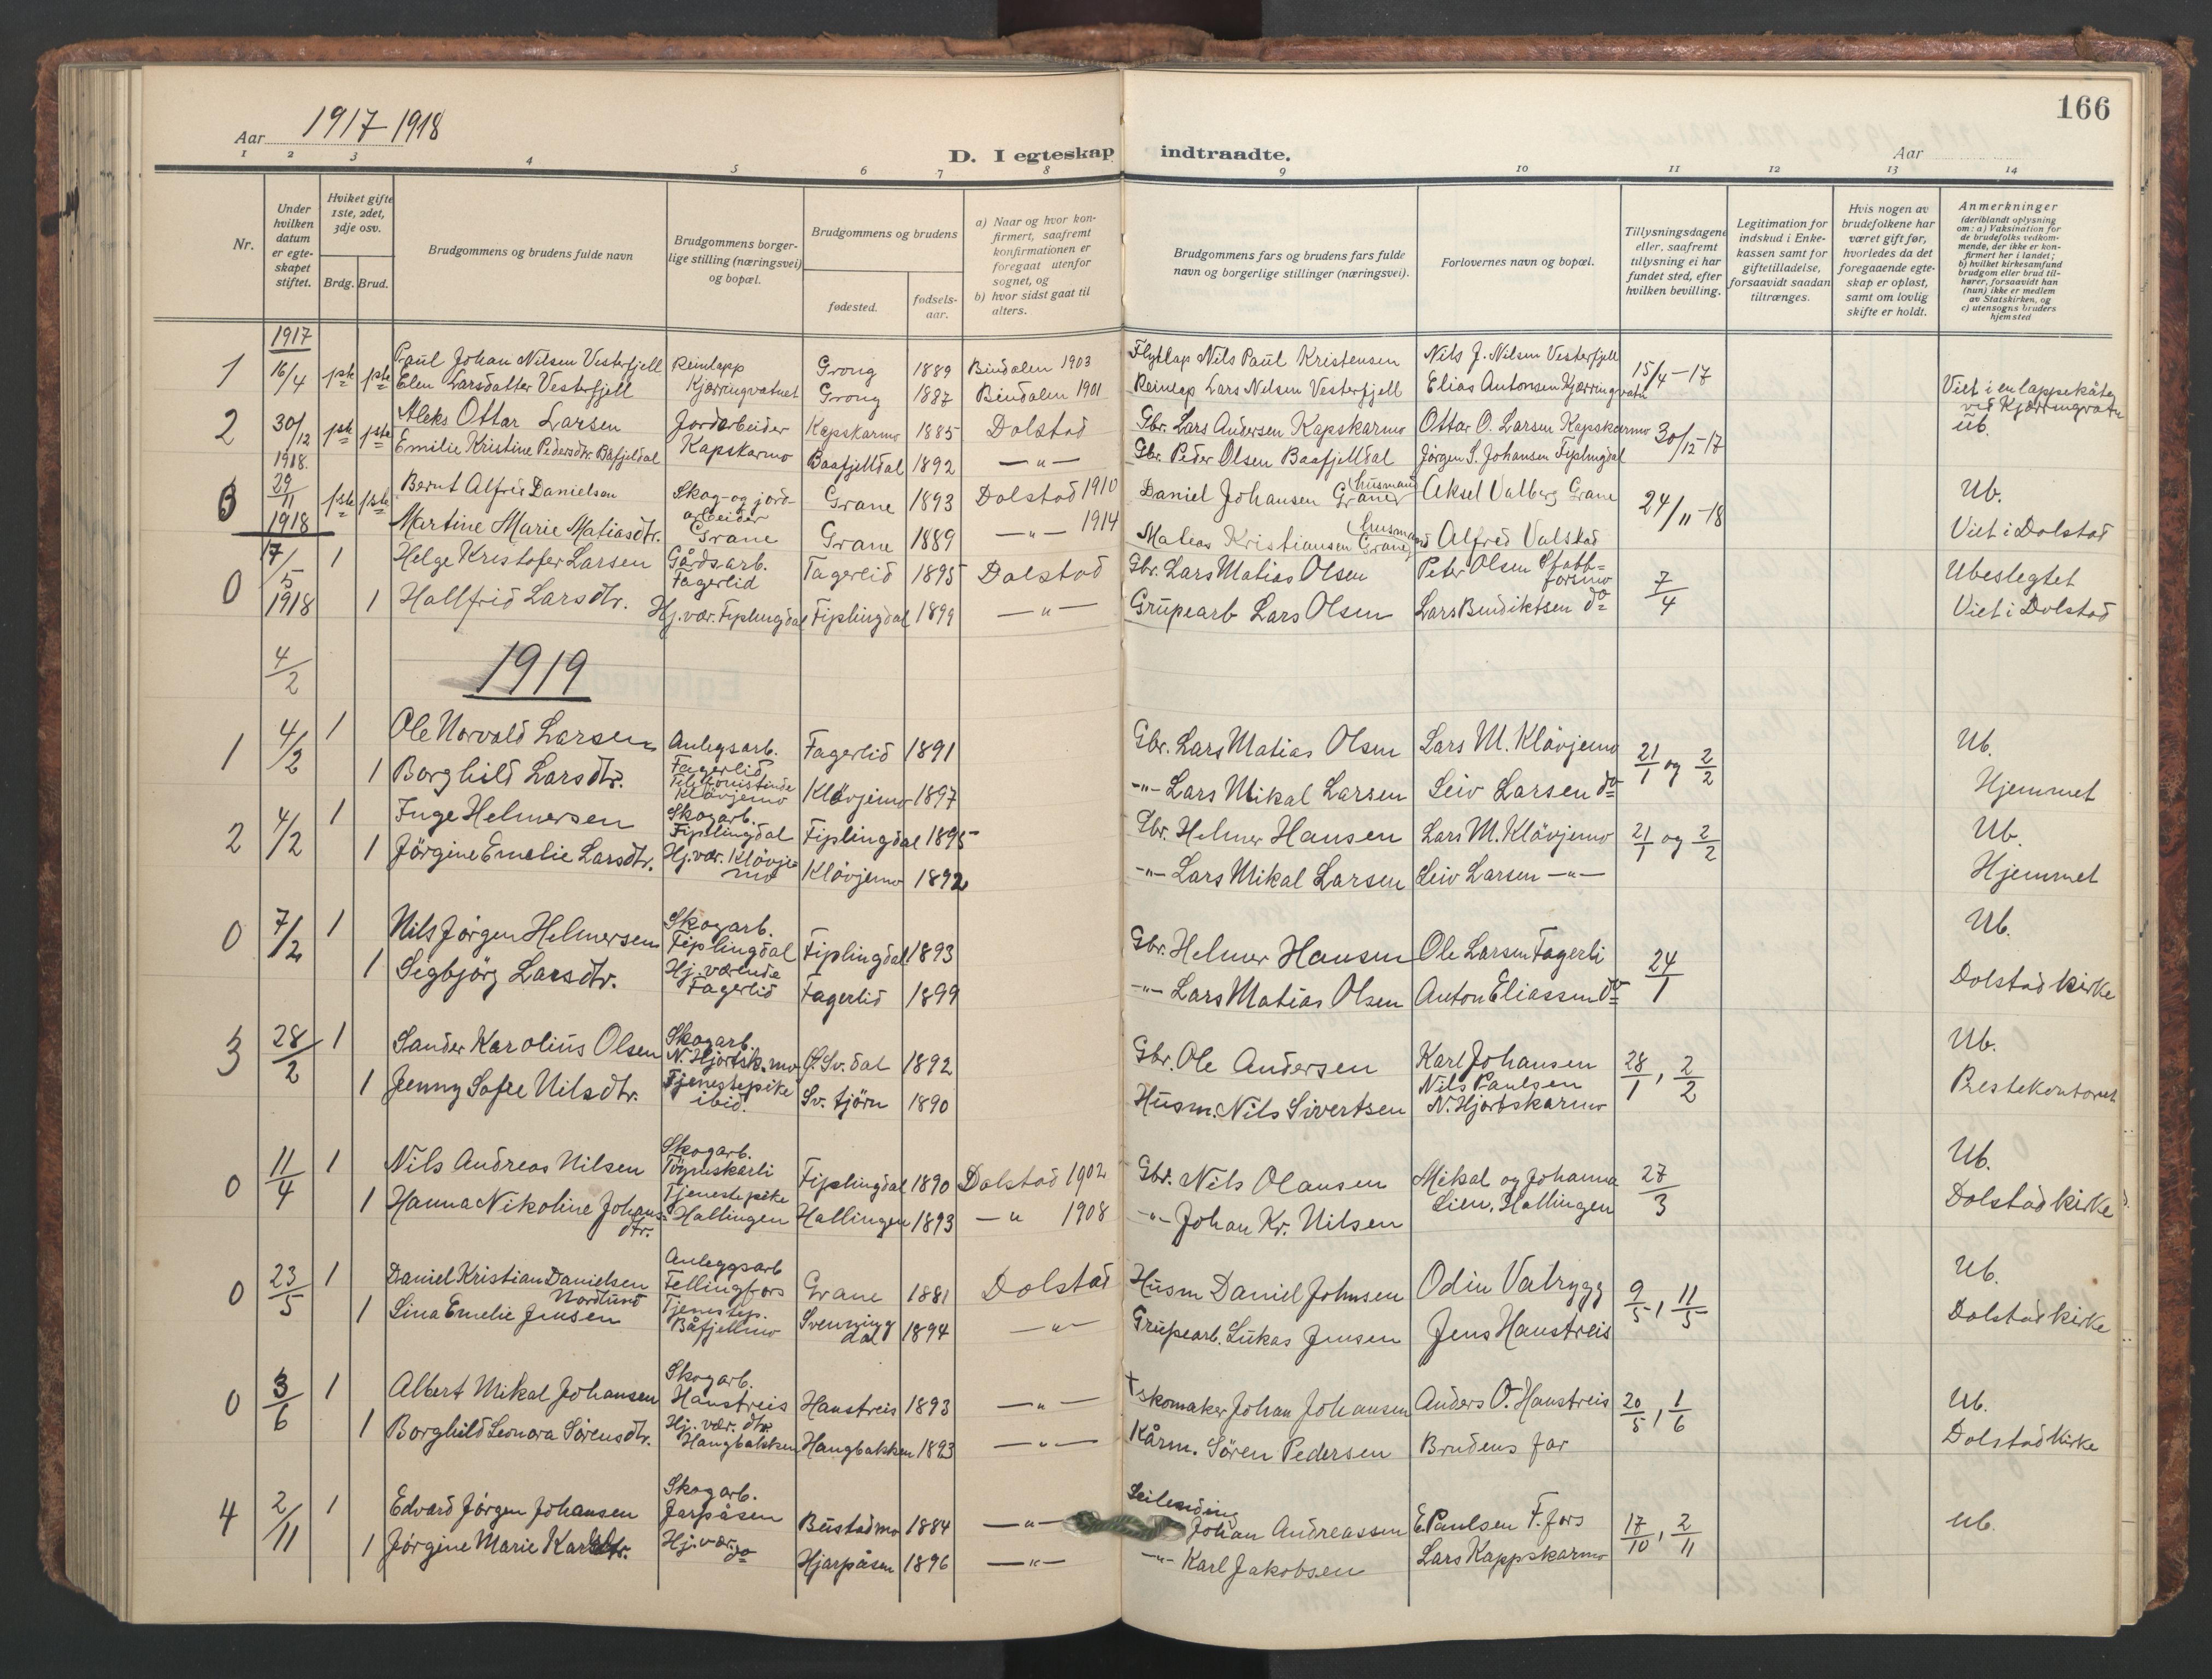 166
Aar 1917-1918
D. I egteskap indtraadte.
Aar
1 2 3 4 5 6 7 8 9 10 11 12 13 14
Nr.
Under hvilken datum er egteskapet stiftet.
Hviket gifte 1ste, 2det, 3dje osv.
Brdg. Brud.
Brudgommens og brudens fulde navn
Brudgommens borgerlige stilling (næringsvei) og bopæl.
Brudgommens og brudens
fødested.
fødsels-aar.
a) Naar og hvor konfirmert, saafremt konfirmationen er foregaat utenfor sognet, og
b) hvor sidst gaat til alters.
Brudgommens fars og brudens fars fulde navn og borgerlige stillinger (næringsvei).
Forlovernes navn og bopæl.
Tillysningsdagene eller, saafremt tillysning ei har fundet sted, efter hvilken bevilling.
Legitimation for indskud i Enkekassen samt for giftetilladelse, forsaavidt saadan tiltrænges.
Hvis nogen av brudefolkene har været gift før, hvorledes da det foregaaende egteskap er opløst, samt om lovlig skifte er holdt.
Anmerkninger
(deriblandt oplysning om: a) Vaksination for de brudefolks vedkommende, der ikke er konfirmert her i landet; b) hvilket kirkesamfund brudgom eller brud tilhører, forsaavidt han (hun) ikke er medlem av Statskirken, og c) utensogns bruders hjemsted
1917
1 16/4 1ste 1ste Paul Johan Nilsen Vesterfjell Reinlapp Grong 1889 Bindalen 1903 Flytlap Nils Paul Kristensen Nils J. Nilsen Vesterfjell 15/4-17
Elen Larsdatter Vesterfjell Kjærringvatnet Grong 1887 Bindalen 1901 Reinlap Lars Nilsen Vesterfjell Elias Antonsen Kjærringvatn Viet i en lappekåte ved Kjærringvatn
2 30/12 1ste 1ste Aleks Ottar Larsen Jordarbeider Kapskarmo 1885 Dolstad Gbr. Lars Andersen Kapskarmo Ottar O. Larsen Kapskarmo 30/12-17 Ub.
Emilie Kristine Pedersdtr. Båfjeldal Kapskarmo Baafjelldal 1892 -"- Gbr. Peder Olsen Baafjelldal Jørgen S. Johansen Fiplingdal
1918.
3 29/11 1ste 1ste Bernt Alfred Danielsen Skog- og jordarbeider Grane 1893 Dolstad 1910 Daniel Johansen Grane (husmand) Aksel Valberg Grane 24/11-18 Ub.
1918 Martine Marie Matiasdtr. Grane Grane 1889 -"- 1914 Mateas Kristiansen Grane (husmand) Alfred Valskad Viet i Dolstad
0 17/5 1 Helge Kristofer Larsen Gårdsarb. Fagerlid Fagerlid 1895 Dolstad Gbr. Lars Matias Olsen Peter Olsen Stabbforsmo 7/4 Ubeslegtet
1918 1 Hallfrid Larsdtr. Hj.vær. Fiplingdal Fiplingdal 1899 -"- Grupearb Lars Olsen Lars Bendiktsen do Viet i Dolstad
4/2 1919
1 4/2 1 Ole Norvald Larsen Anlegsarb. Fagerlid Fagerlid 1891 Gbr. Lars Matias Olsen Lars M. Kløvjemo 21/1 og 2/2 Ub.
1 Borghild Larsdtr. Telefonistinde Kløvjemo Kløvjemo 1897 -"- Lars Mikal Larsen Leiv Larsen do Hjemmet
2 4/2 1 Inge Helmersen Skogarb. Fiplingdal Fiplingdal 1895 Gbr. Helmer Hansen Lars M. Kløvjemo 21/1 og 2/2 Ub.
1 Jörgine Emelie Larsdtr. Hj.vær. Kløvjemo Kløvjemo 1892 -"- Lars Mikal Larsen Leiv Larsen -"- Hjemmet
0 7/2 1 Nils Jörgen Helmersen Skogarb. Fiplingdal Fiplingdal 1893 Gbr. Helmer Hansen Ole Larsen Fagerli 24/1 Ub.
1 Segbjörg Larsdtr. Hj. værende Fagerlid Fagerlid 1899 -"- Lars Matias Olsen Anton Eliassen do Dolstad kirke
3 28/2 1 Sander Karolius Olsen Skogarb. N. Hjortsk.mo Ø. Sv. dal 1892 Gbr. Ole Andersen Karl Johansen 28/1, 2/2 Ub.
1 Jenny Sofie Nilsdtr. Tjenestepike ibid. Sv. tjörn 1890 Husm. Nils Sivertsen Nils Paulsen N. Hjortskarmo Prestekontoret
0 11/4 1 Nils Andreas Nilsen Skogarb. Fiplingdal 1890 Dolstad 1902 Gbr. Nils Olausen Mikal og Johanna 27/3 Ub.
1 Hanna Nikoline Johansdtr. Tjenestepike Hallingen Hallingen 1893 -" 1908 -"- Johan Kr. Nilsen Lien, Hallingen Dolstad kirke
0 23/5 1 Daniel Kristian Danielsen Nordlund Anleggsarb Fellingfors Grane 1881 Dolstad Husm Daniel Johnsen Odin Vatrygg 9/5, 11/5 Ub.
1 Lina Emelie Jensen Tjenestep. Båfjellmo Svenningdal 1894 -"- Grupearb. Lukas Jensen Jens Haustreis Dolstad kirke
0 3/6 1 Albert Mikal Johansen Skogarb. Haustreis Haustreis 1893 -"- † skomaker Johan Johansen Anders O. Haustreis 20/5, 1/6 Ub.
1 Borghild Leonora Sörensdtr. Hj. vær. dtr. Haugbakken Haugbakken 1893 -"- Kårm. Sören Pedersen Brudens far Dolstad kirke
4 2/11 1 Edvard Jörgen Johansen Skogarb. Jarpåsen Bustadmo 1884 -"- Leilending Johan Andreassen E. Paulsen F. fors 17/10, 2/11 Ub.
1 Jörgine Marie Karlsdtr. Hj. vær. do Hjarpåsen 1896 -"- -"- Karl Jakobsen Lars Kappskarmo